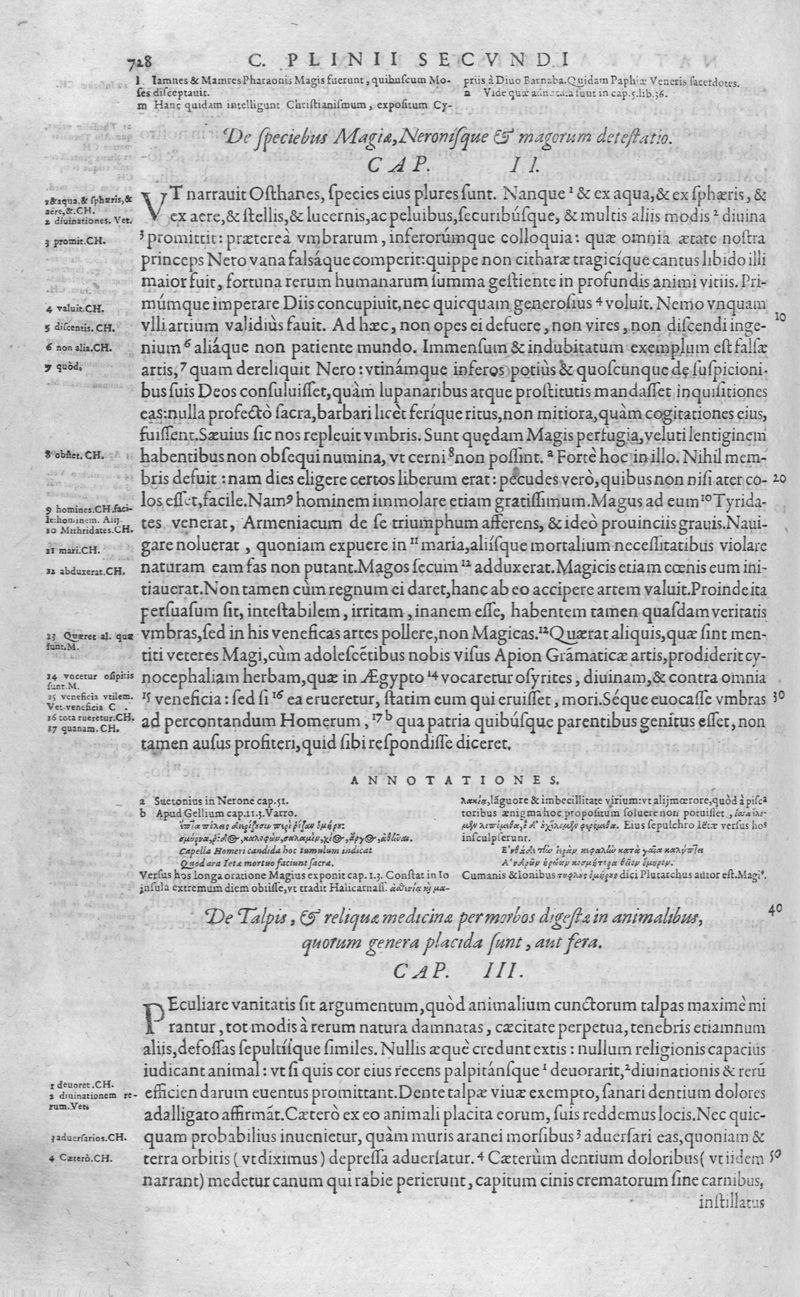 728
C. PLINII SECVNDI
l Iamnes & Mamres Pharaonis Magis fuerunt, quibuscum Mo-
ses disceptauit.
m Hanc quidam intelligunt Christianismum, expositum Cy-
priis à Diuo Barnaba. Quidam Paphiæ Veneris sacerdotes.
a Vide quæ annotata sunt in cap.5.lib.36.
De speciebus Magiæ, Neronisque & magorum detestatio.
CAP. II.
VT narrauit Osthanes, species eius plures sunt. Nanque 1 & ex aqua, & ex sphæris, &
ex aere, & stellis, & lucernis, ac peluibus, securibúsque, & multis aliis modis 2 diuina
3 promittit: præterea vmbrarum, inferorúmque colloquia: quæ omnia ætate nostra
princeps Nero vana falsáque comperit: quippe non citharæ tragicíque cantus libido illi
maior fuit, fortuna rerum humanarum summa gestiente in profundis animi vitiis. Pri-
múmque imperare Diis concupiuit, nec quicquam generosius 4 voluit. Nemo vnquam
vlli artium validiùs fauit. Ad hæc, non opes ei defuere, non vires, non discendi inge-
nium 6 aliáque non patiente mundo. Immensum & indubitatum exemplum est falsæ
artis, 7 quam dereliquit Nero: vtinámque inferos potiùs & quoscunque de suspicioni-
bus suis Deos consuluisset, quàm lupanaribus atque prostitutis mandasset inquisitiones
eas: nulla profectò sacra, barbari licèt feríque ritus, non mitiora, quàm cogitationes eius,
fuissent. Sæuius sic nos repleuit vmbris. Sunt quędam Magis perfugia, veluti lentiginem
habentibus non obsequi numina, vt cerni 8 non possint. a Fortè hoc in illo. Nihil mem-
bris defuit: nam dies eligere certos liberum erat: pecudes verò, quibus non nisi ater co-
los esset, facile. Nam 9 hominem immolare etiam gratissimum. Magus ad eum 10 Tyrida-
tes venerat, Armeniacum de se triumphum afferens, & ideò prouinciis grauis. Naui-
gare noluerat, quoniam expuere in 11 maria, aliísque mortalium necessitatibus violare
naturam eam fas non putant. Magos secum 12 adduxerat. Magicis etiam cœnis eum ini-
tiauerat. Non tamen cùm regnum ei daret, hanc ab eo accipere artem valuit. Proinde ita
persuasum sit, intestabilem, irritam, inanem esse, habentem tamen quasdam veritatis
vmbras, sed in his veneficas artes pollere, non Magicas. 12 Quærat aliquis, quæ sint men-
titi veteres Magi, cùm adolescẽtibus nobis visus Apion Grãmaticæ artis, prodiderit cy-
nocephaliam herbam, quæ in Ægypto 14 vocaretur osyrites, diuinam, & contra omnia
15 veneficia: sed si 16 ea erueretur, statim eum qui eruisset, mori. Séque euocasse vmbras
ad percontandum Homerum, 17 b qua patria quibúsque parentibus genitus esset, non
tamen ausus profiteri, quid sibi respondisse diceret.
1 & aqua, & sphæris, &
aere, &. CH.
2 diuinationes. Vet.
3 promit. CH.
4 valuit. CH.
5 discentis. CH.
6 non alia. CH.
7 quòd.
8 obstet. CH.
9 homines. CH. faci-
le: hominem. Alij
10 Mithridates. CH.
11 mari. CH.
12 abduxerat. CH.
13 Quæret al. quæ
sunt. M.
14 vocetur osipitis
sunt. M.
15 veneficia vtilem.
Vet. veneficia C.
16 tota rueretur. CH.
17 quanam. CH.
10
20
30
ANNOTATIONES.
a Suetonius in Nerone cap.51.
b Apud Gellium cap.11.3. Varro.
Capella Homeri candida hoc tumulum indicat
Quod ara Ietæ mortuo faciunt sacra.
Versus hos longa oratione Magius exponit cap. 1.3. Constat in Io
insula extremum diem obiisse, vt tradit Halicarnass.
lãguore & imbecillitate virium: vt alij mœrore, quòd à piscª
toribus ænigma hoc propositum soluere non potuisset,
Eius sepulchro Ietæ versus hoˢ
insculpserunt.
Cumanis & Ionibus dici Plutarchus autor est. Magiº.
De Talpis, & reliqua medicina per morbos digesta in animalibus,
quorum genera placida sunt, aut fera.
40
CAP. III.
PEculiare vanitatis sit argumentum, quòd animalium cunctorum talpas maximè mi
rantur, tot modis à rerum natura damnatas, cæcitate perpetua, tenebris etiamnum
aliis, defossas sepultíſque similes. Nullis æquè credunt extis: nullum religionis capacius
iudicant animal: vt si quis cor eius recens palpitánsque 1 deuorarit, 2 diuinationis & rerũ
efficiendarum euentus promittant. Dente talpæ viuæ exempto, sanari dentium dolores
adalligato affirmãt. Cæterò ex eo animali placita eorum, suis reddemus locis. Nec quic-
quam probabilius inuenietur, quàm muris aranei morsibus 3 aduersari eas, quoniam &
terra orbitis (vt diximus) depressa aduersatur. 4 Cæterùm dentium doloribus (vt iidem
narrant) medetur canum qui rabie perierunt, capitum cinis crematorum sine carnibus,
instillatus
1 deuoret. CH.
2 diuinationem re-
rum. Vet.
3 aduersarios. CH.
4 Cæterò. CH.
50